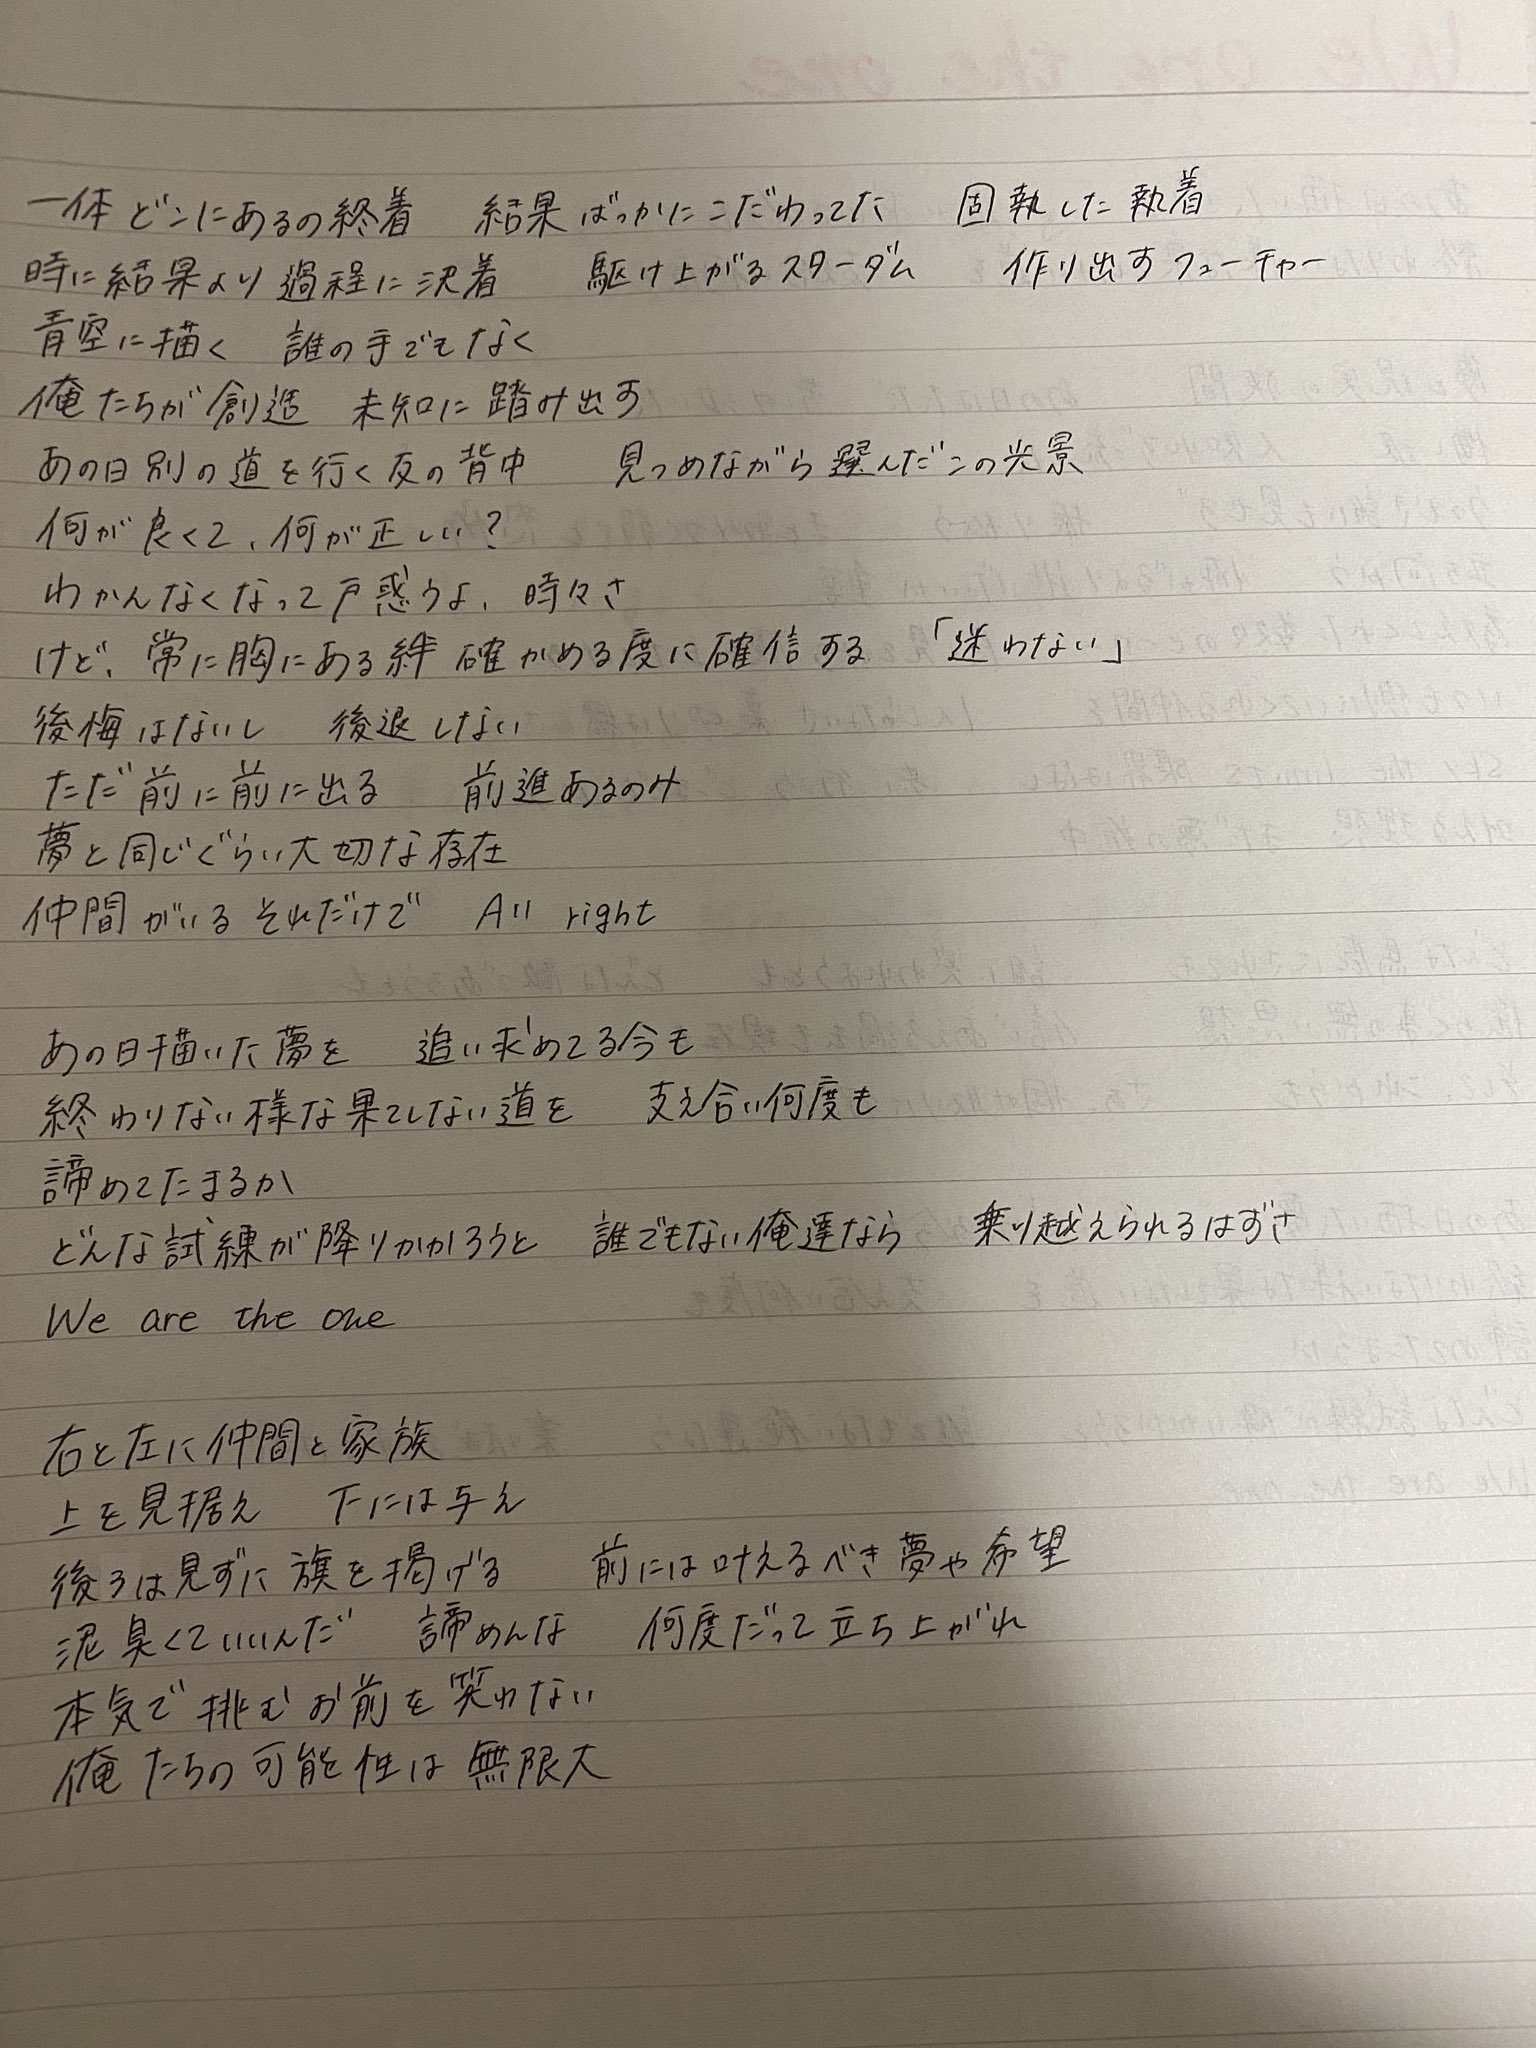 一体どこにあるの終着　結果ばっかにこだわってた　固執した執着
時に結果より過程に決着　駆け上がるスターダム　作り出すフューチャー
青空に描く　誰の手でもなく
俺たちが創造　未知に踏み出す
あの日別の道を行く友の背中　見つめながら選んだこの光景
何が良くて、何が正しい?
わかんなくなって戸惑うよ、時々さ
けど、常に胸にある絆 確かめる度に確信する　「迷わない」
後悔はないし　後退しない
ただ前に前に出る　前進あるのみ
夢と同じぐらい大切な存在
仲間がいるそれだけで　All right
あの日描いた夢を　追い求めてる今も
終わりない様な果てしない道を　支え合い何度も
諦めてたまるか
どんな試練が降りかかろうと　誰でもない俺達なら　乗り越えられるはずさ
We are the one
右と左に仲間と家族
上を見据え　下には与え
後ろは見ずに旗を掲げる　前には叶えるべき夢や希望
泥臭くていいんだ　諦めんな　何度だって立ち上がれ
本気で挑むお前を笑わない
俺たちの可能性は無限大